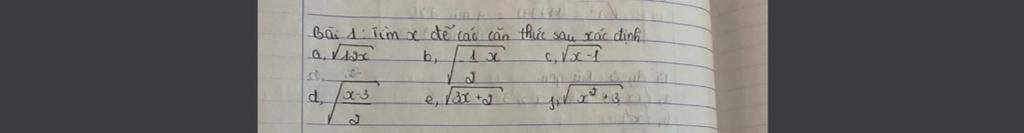 Bài 1: Tìm x để các căn thức sau xác định
a, √12x b, √(1/2 x) c, √(x-1)
d, √((x-3)/2) e, √(3x+2) f, √(x²+3)